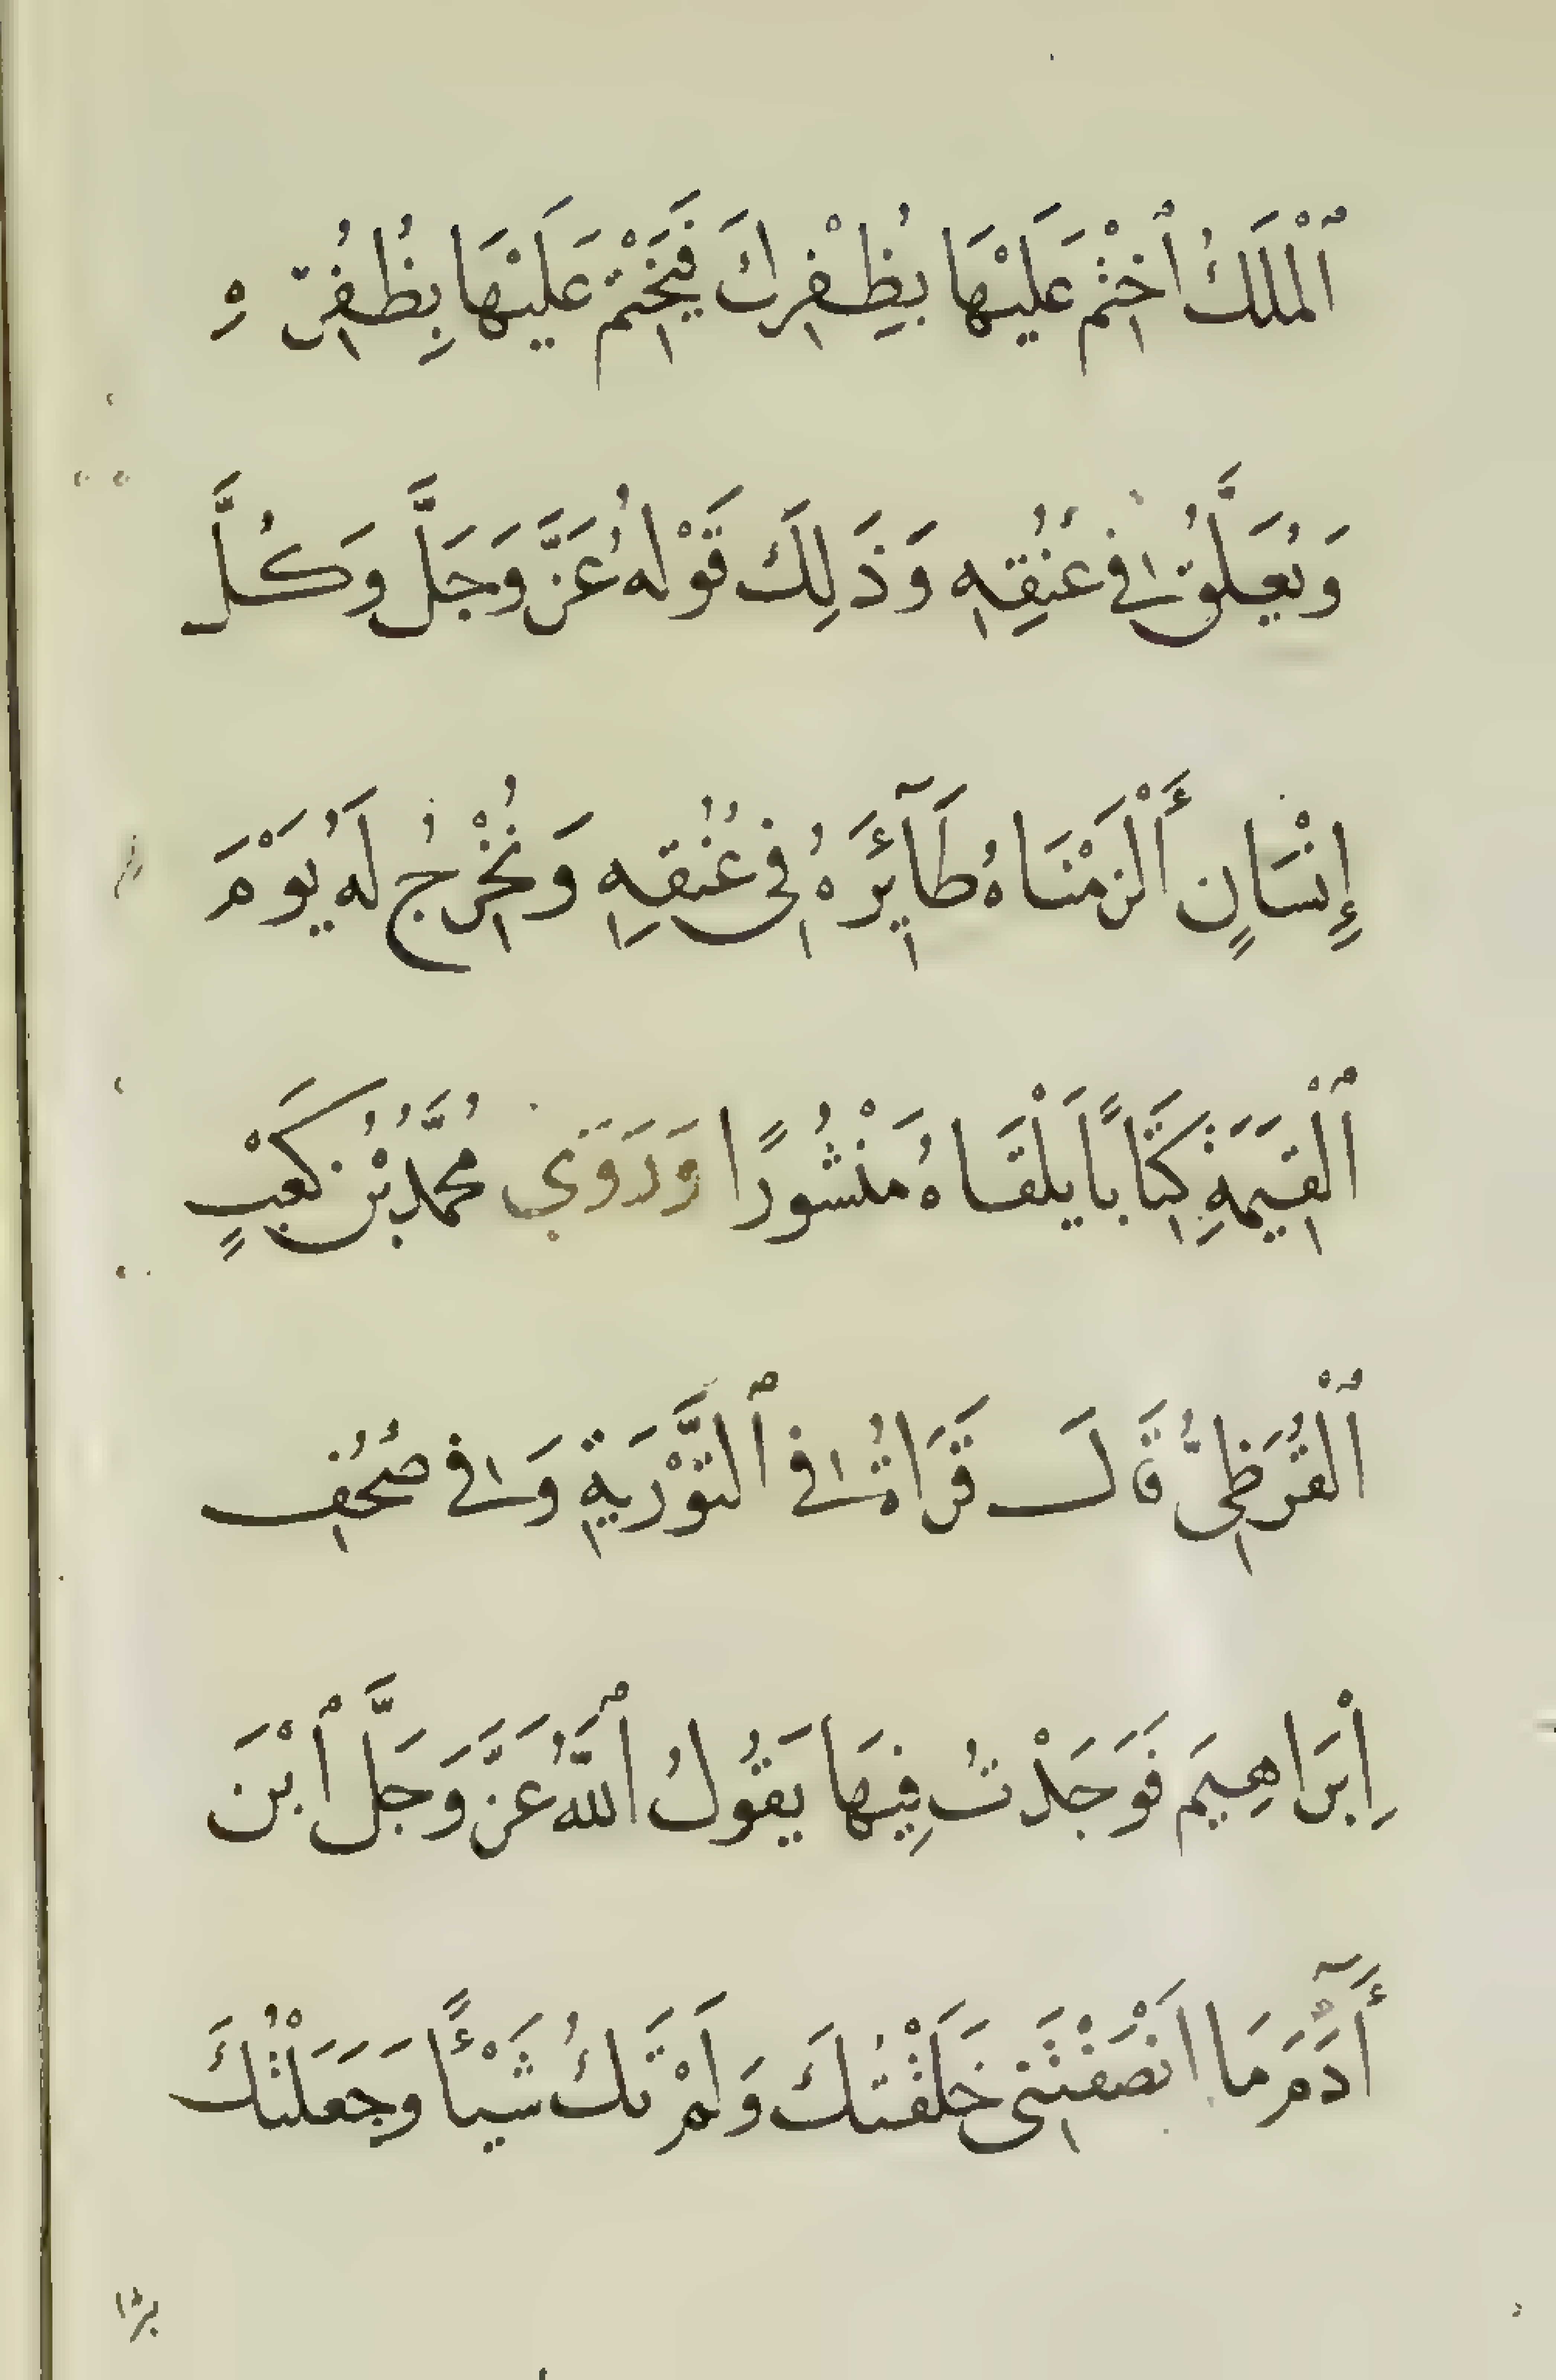 ٱلْمَلَكُ ٱخْتِمْ عَلَيْهَا بِظُفْرِكَ فَيَخْتِمْ عَلَيْهَا بِظُفُرِّهِ
وَيُعَلَّقُ فِي عُنُقِهِ وَذَلِكَ قَوْلُهُ عَزَّ وَجَلَّ وَكُلَّ
إِنْسَانٍ أَلْزَمْنَاهُ طَآئِرَهُ فِي عُنُقِهِ وَنُخْرِجُ لَهُ يَوْمَ
ٱلْقِيَمَةِ كِتَابًا يَلْقَاهُ مَنْشُورًا وَرَوَي مُحَمَّدُ بْنُ كَعْبٍ
ٱلْقُرَظِيُّ قَالَ قَرَاتُ فِي ٱلتَّوْرَيةِ وَفِي صُحُفِ
اِبْرَاهِيمَ فَوَجَدْتُ فِيهَا يَقُولُ ٱللَّهُ عَزَّ وَجَلَّ ٱبْنَ
أَدَمَ مَا اَنْصَفْتَنِي خَلَقْتُكَ وَلَمْ تَكُ شَيْئًا وَجَعَلْتُكَ